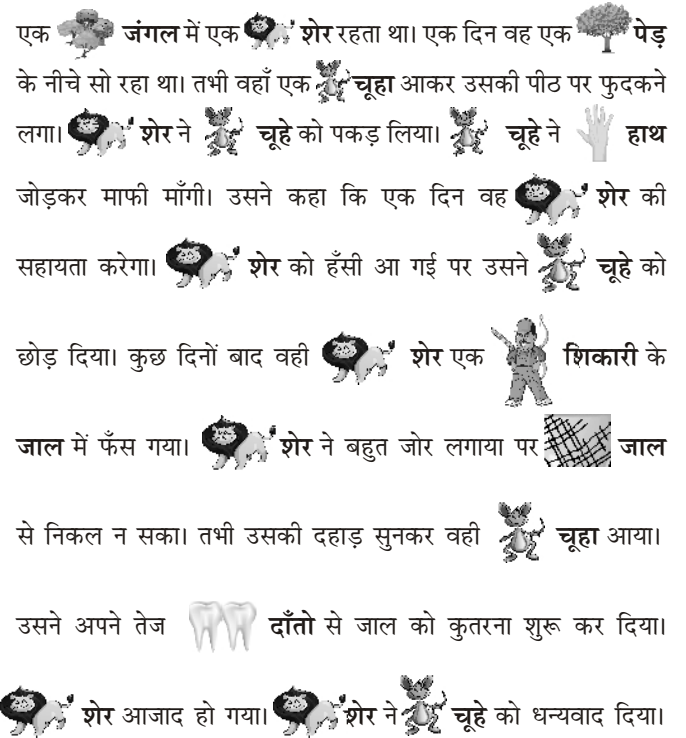 एक जंगल में एक शेर रहता था। एक दिन वह एक पेड़
के नीचे सो रहा था। तभी वहाँ एक चूहा आकर उसकी पीठ पर फुदकने
लगा। शेर ने चूहे को पकड़ लिया। चूहे ने हाथ
जोड़कर माफी माँगी। उसने कहा कि एक दिन वह शेर की
सहायता करेगा। शेर को हँसी आ गई पर उसने चूहे को
छोड़ दिया। कुछ दिनों बाद वही शेर एक शिकारी के
जाल में फँस गया। शेर ने बहुत जोर लगाया पर जाल
से निकल न सका। तभी उसकी दहाड़ सुनकर वही चूहा आया।
उसने अपने तेज दाँतो से जाल को कुतरना शुरू कर दिया।
शेर आजाद हो गया। शेर ने चूहे को धन्यवाद दिया।